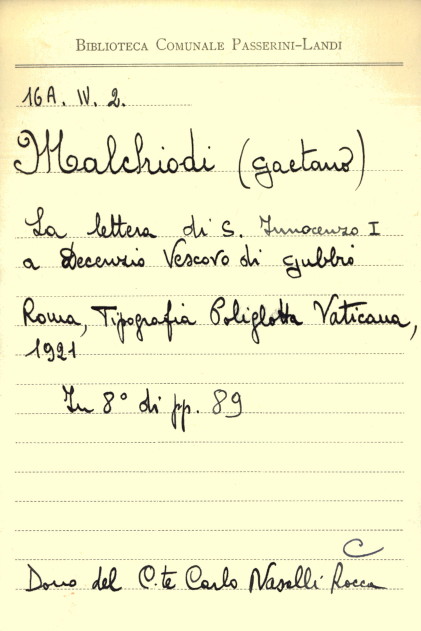 BIBLIOTECA COMUNALE PASSERINI-LANDI
16A. IV. 2.
Malchiodi (Gaetano)
La lettera di S. Innocenzo I
a Decenzio Vescovo di Gubbio
Roma, Tipografia Poliglotta Vaticana,
1921
In 8° di pp. 89
C
Dono del C.te Carlo Naselli Rocca